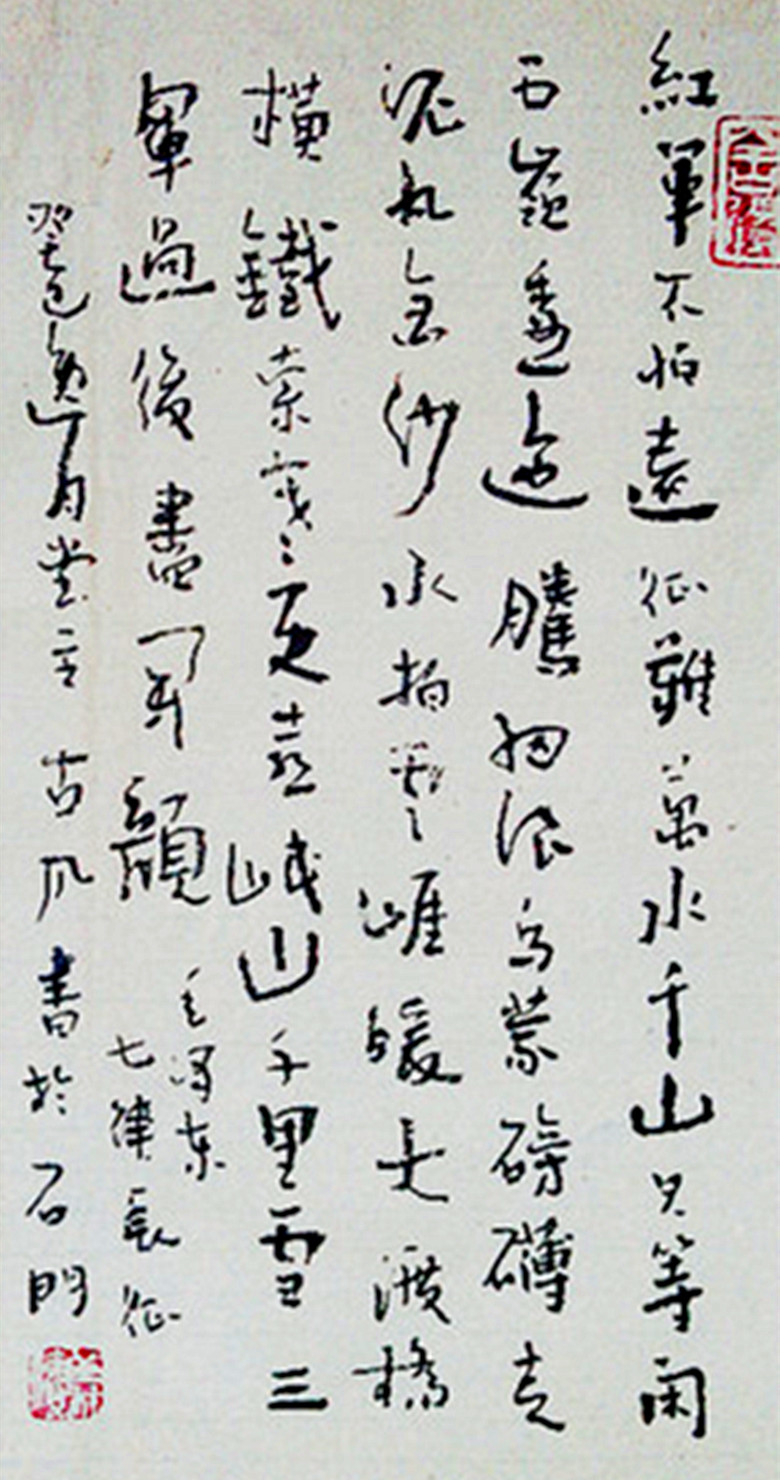 紅軍不怕遠征難萬水千山只等閑
五嶺逶迤騰細浪烏蒙磅礴走
泥丸金沙水拍雲崖暖大渡橋
橫鐵索寒更喜岷山千里雪三
軍過後盡開顏
毛澤東
七律長征
癸巳逸月堂主古风書於石門